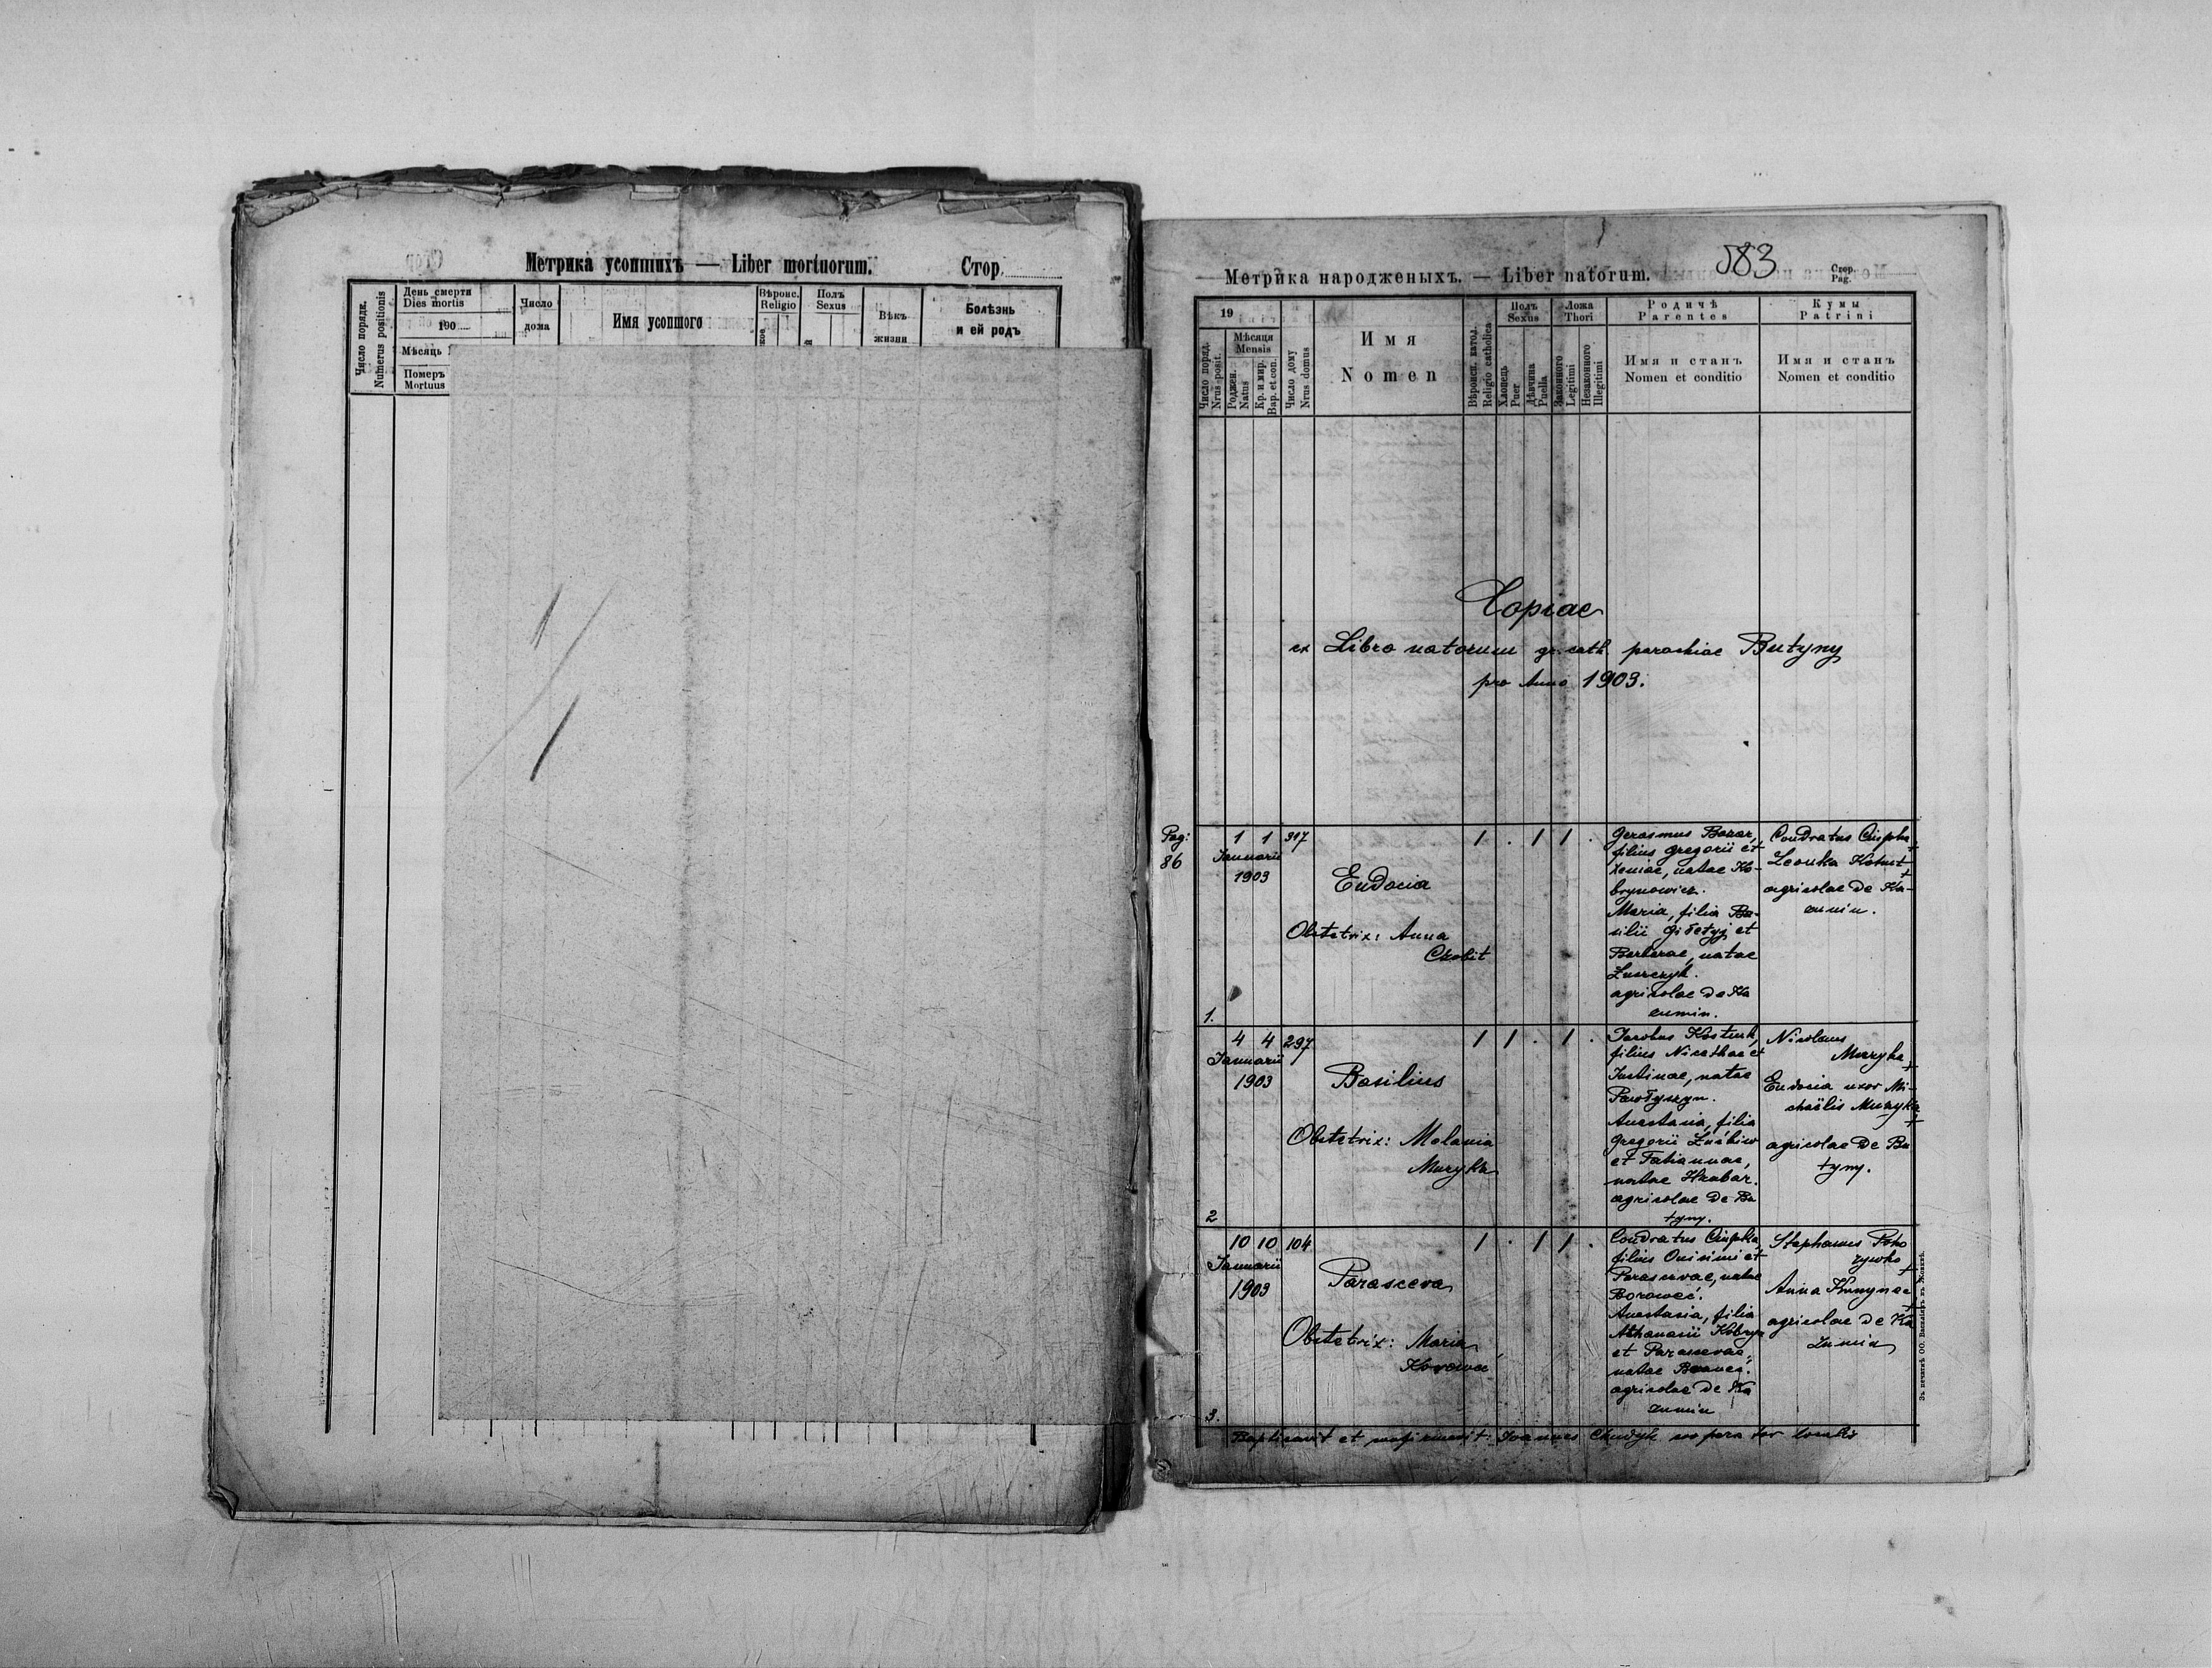 Метрика усопшихъ — Liber mortuorum.
Стор.
Число порядк.
Numerus positionis
День смерти
Dies mortis
190
Мѣсяць
Померъ
Mortuus
Число
дома
Имя усопшого
Вѣроис.
Religio
Полъ
Sexus
Вѣкъ
жизни
Болѣзнь
и ей родъ
583
Метрика народженыхъ. — Liber natorum.
Стор.
Pag.
19
Число поряд.
Nrus posit.
Мѣсяця
Mensis
Роджен.
Natus
Кр. и мир.
Bap. et con.
Число дому
Nrus domus
Имя
Nomen
Вѣроисп. катод.
Religio catholica
Полъ
Sexus
Хлопець
Puer
Дѣвчина
Puella
Ложа
Thori
Законного
Legitimi
Незаконного
Illegitimi
Родичѣ
Parentes
Имя и станъ
Nomen et conditio
Кумы
Patrini
Имя и станъ
Nomen et conditio
Copiae
ex Libro natorum gr. cath. parochiae Butyny
pro Anno 1903.
Pag:
86
1.
1 1 317
Januarii
1903
Eudocia
Obstetrix: Anna
1 . 1 1 .
Gerasmus
filius Gregorii et
Xeniae, natae Ko-
brynowicz.
Maria, filia Ba-
silii et
Barbarae, natae
agricolae de Ka
zumin.
Condratus
agricolae de Ka-
zumin.
2
4 4 297
Januarii
1903
Basilius
Obstetrix: Melania
Muzyka
1 1 . 1 .
Jacobus
filius Nicethae et
Justinae, natae
Anastasia, filia
Gregorii
et Tatiannae,
natae Hrabar.
agricolae de Bu
tyny.
Nicolaus
Muzyka +
Eudocia uxor Mi-
chaëlis Muzyka +
agricolae de Bu
tyny.
3.
10 10 104
Januarii
1903
Parasceva
Obstetrix: Maria
1 . 1 1 .
Condratus
filius Onisimi et
Parascevae, natae
Anastasia, filia
Athanasii
et Parascevae,
natae
agricolae de Ka
zumin
Stephanus
Anna
agricolae de Ka
zumin
Baptisavit et confirmavit: Joannes Chudyk cooperator localis
Зъ печатнѣ ОО. Василіянъ въ Жовквѣ.